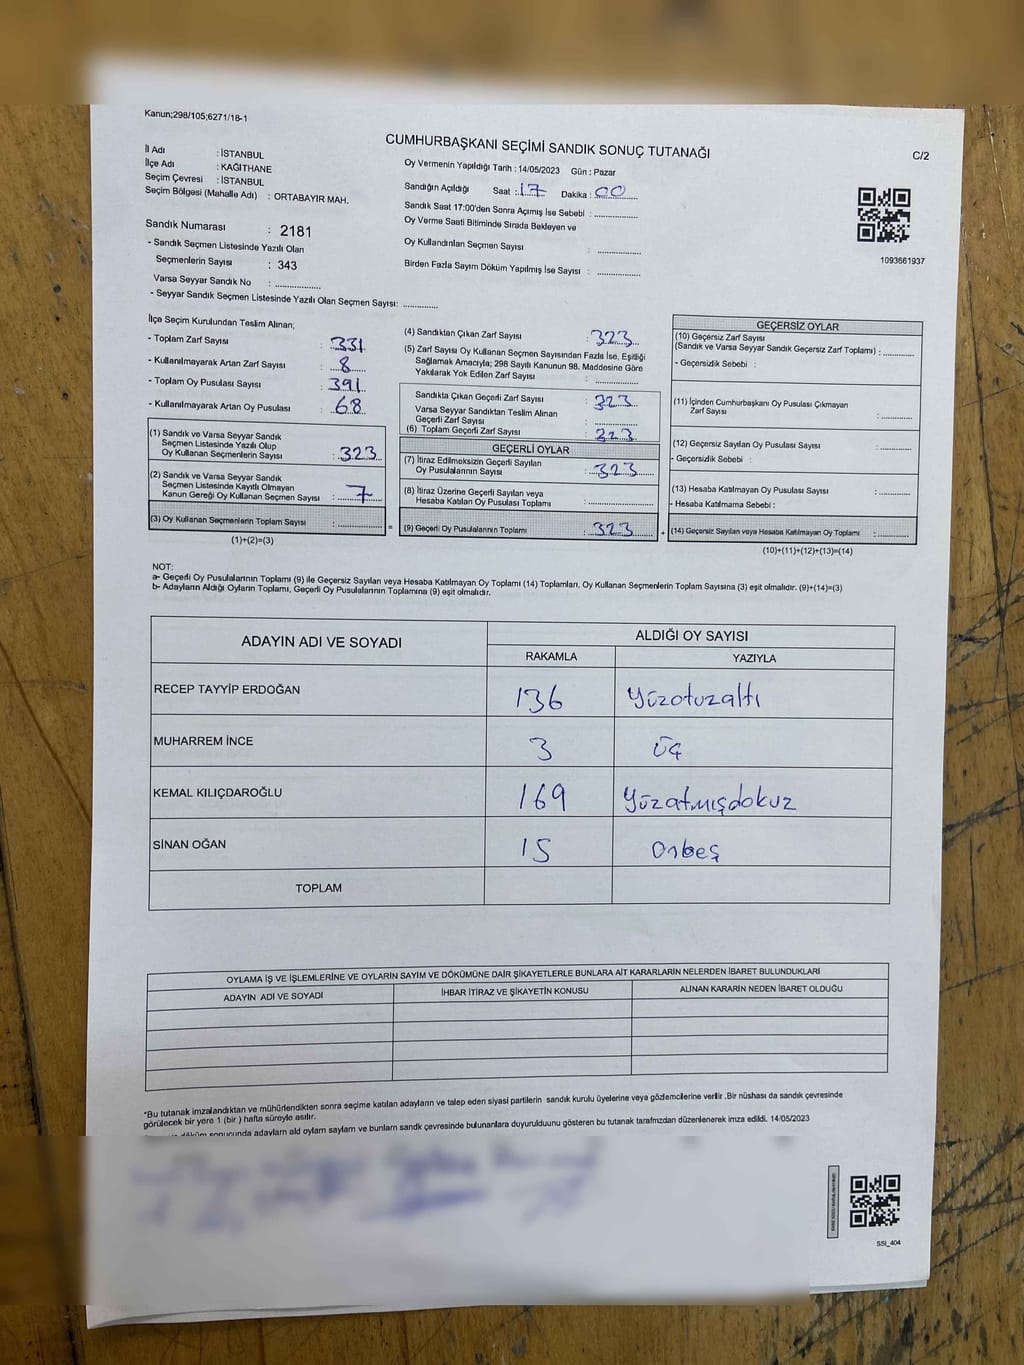 Kanun;298/105;6271/18-1
CUMHURBAŞKANI SEÇİMİ SANDIK SONUÇ TUTANAĞI
C/2
İl Adı : İSTANBUL
İlçe Adı : KAĞITHANE
Seçim Çevresi : İSTANBUL
Seçim Bölgesi (Mahalle Adı) : ORTABAYIR MAH.
Oy Vermenin Yapıldığı Tarih : 14/05/2023 Gün : Pazar
Sandığın Açıldığı Saat : 17 Dakika : 00
Sandık Saat 17:00'den Sonra Açımış İse Sebebi :
Oy Verme Saati Bitiminde Sırada Bekleyen ve
Oy Kullandırılan Seçmen Sayısı :
Birden Fazla Sayım Döküm Yapılmış İse Sayısı :
1093661937
Sandık Numarası : 2181
- Sandık Seçmen Listesinde Yazılı Olan
Seçmenlerin Sayısı : 343
Varsa Seyyar Sandık No :
- Seyyar Sandık Seçmen Listesinde Yazılı Olan Seçmen Sayısı:
İlçe Seçim Kurulundan Teslim Alınan;
- Toplam Zarf Sayısı : 331
- Kullanılmayarak Artan Zarf Sayısı : 8
- Toplam Oy Pusulası Sayısı : 391
- Kullanılmayarak Artan Oy Pusulası : 68
(1) Sandık ve Varsa Seyyar Sandık
Seçmen Listesinde Yazılı Olup
Oy Kullanan Seçmenlerin Sayısı : 323
(2) Sandık ve Varsa Seyyar Sandık
Seçmen Listesinde Kayıtlı Olmayan
Kanun Gereği Oy Kullanan Seçmen Sayısı : 7
(3) Oy Kullanan Seçmenlerin Toplam Sayısı :
(1)+(2)=(3)
(4) Sandıktan Çıkan Zarf Sayısı : 323
(5) Zarf Sayısı Oy Kullanan Seçmen Sayısından Fazla İse, Eşitliği
Sağlamak Amacıyla; 298 Sayılı Kanunun 98. Maddesine Göre
Yakılarak Yok Edilen Zarf Sayısı :
Sandıkta Çıkan Geçerli Zarf Sayısı : 323
Varsa Seyyar Sandıktan Teslim Alınan
Geçerli Zarf Sayısı :
(6) Toplam Geçerli Zarf Sayısı : 323
GEÇERLİ OYLAR
(7) İtiraz Edilmeksizin Geçerli Sayılan
Oy Pusulalarının Sayısı : 323
(8) İtiraz Üzerine Geçerli Sayılan veya
Hesaba Katılan Oy Pusulası Toplamı :
= (9) Geçerli Oy Pusulalarının Toplamı : 323
GEÇERSİZ OYLAR
(10) Geçersiz Zarf Sayısı
(Sandık ve Varsa Seyyar Sandık Geçersiz Zarf Toplamı) :
- Geçersizlik Sebebi :
(11) İçinden Cumhurbaşkanı Oy Pusulası Çıkmayan
Zarf Sayısı :
(12) Geçersiz Sayılan Oy Pusulası Sayısı :
- Geçersizlik Sebebi :
(13) Hesaba Katılmayan Oy Pusulası Sayısı :
- Hesaba Katılmama Sebebi :
+ (14) Geçersiz Sayılan veya Hesaba Katılmayan Oy Toplamı :
(10)+(11)+(12)+(13)=(14)
NOT:
a- Geçerli Oy Pusulalarının Toplamı (9) ile Geçersiz Sayılan veya Hesaba Katılmayan Oy Toplamı (14) Toplamları, Oy Kullanan Seçmenlerin Toplam Sayısına (3) eşit olmalıdır. (9)+(14)=(3)
b- Adayların Aldığı Oyların Toplamı, Geçerli Oy Pusulalarının Toplamına (9) eşit olmalıdır.
ADAYIN ADI VE SOYADI
ALDIĞI OY SAYISI
RAKAMLA YAZIYLA
RECEP TAYYİP ERDOĞAN 136 Yüzotuzaltı
MUHARREM İNCE 3 üç
KEMAL KILIÇDAROĞLU 169 Yüzatmışdokuz
SİNAN OĞAN 15 Onbeş
TOPLAM
OYLAMA İŞ VE İŞLEMLERİNE VE OYLARIN SAYIM VE DÖKÜMÜNE DAİR ŞİKAYETLERLE BUNLARA AİT KARARLARIN NELERDEN İBARET BULUNDUKLARI
ADAYIN ADI VE SOYADI İHBAR İTİRAZ VE ŞİKAYETİN KONUSU ALINAN KARARIN NEDEN İBARET OLDUĞU
*Bu tutanak imzalandıktan ve mühürlendikten sonra seçime katılan adayların ve talep eden siyasi partilerin sandık kurulu üyelerine veya gözlemcilerine verilir .Bir nüshası da sandık çevresinde
görülecek bir yere 1 (bir ) hafta süreyle asılır.
sonucunda adayların ald oyların sayları ve bunların sandk çevresinde bulunanlara duyurulduunu gösteren bu tutanak tarafmzdan düzenlenerek imza edildi. 14/05/2023
SSI_404